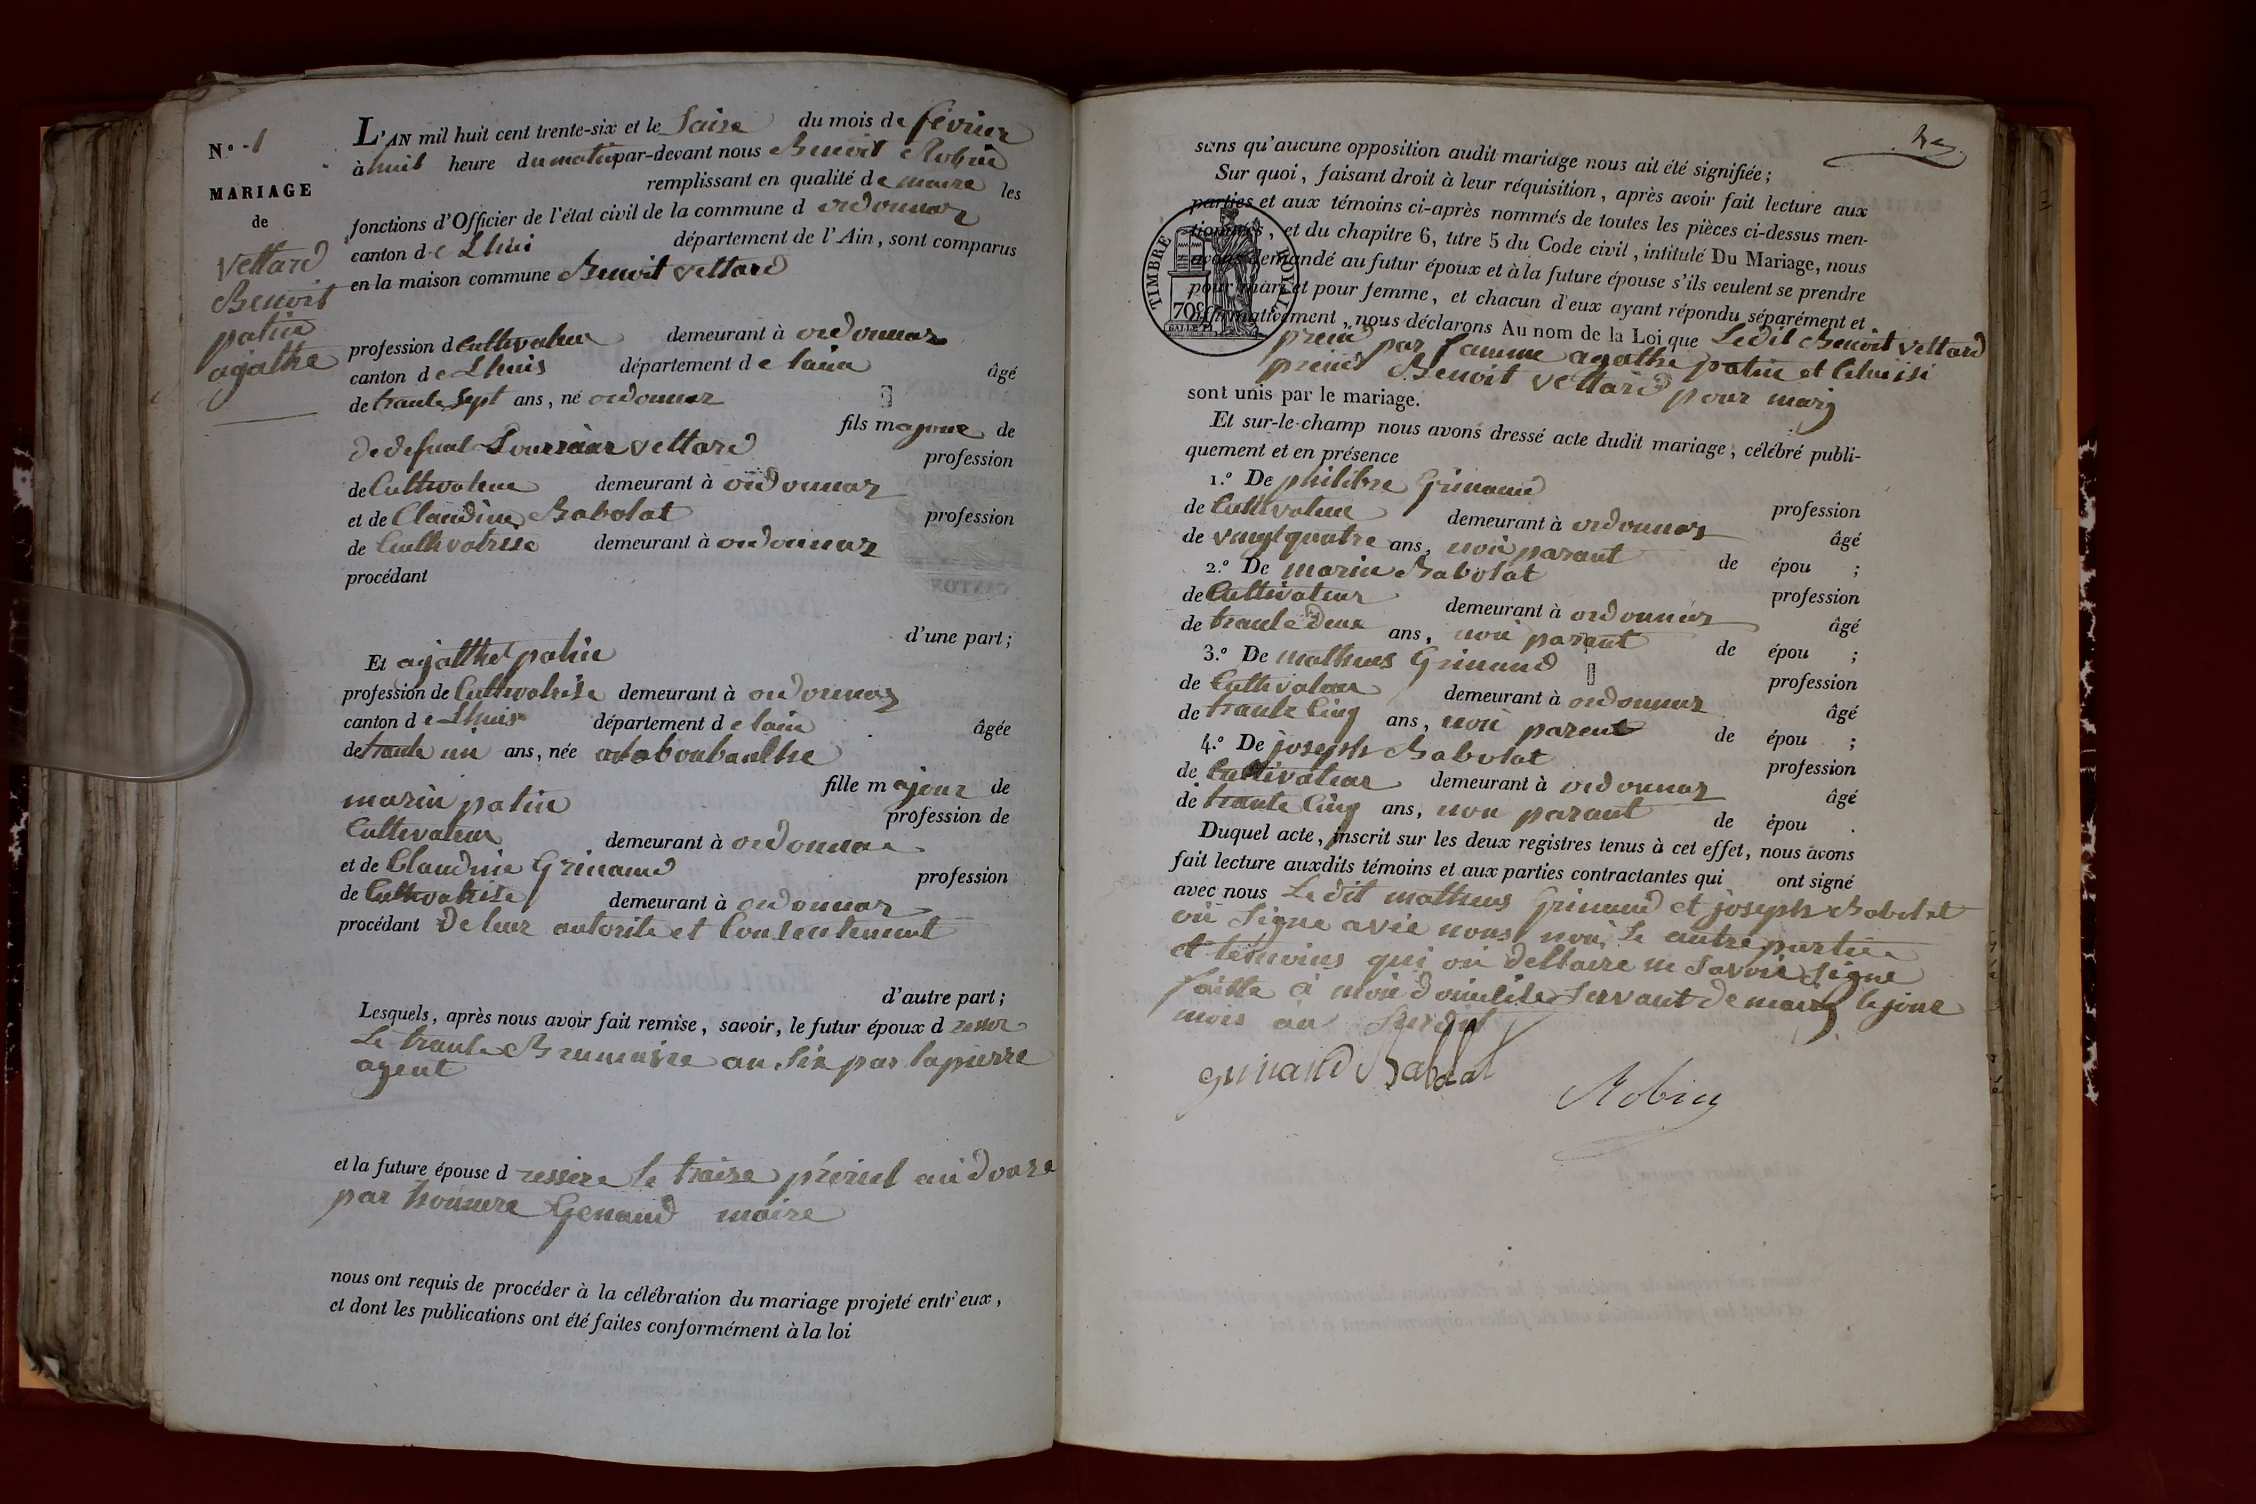 N.° 1
MARIAGE
de
vettard
Benoit
patin
agathe
L'AN mil huit cent trente-six et le saise du mois de février
à huit heure du matin par-devant nous Benoit Robin
remplissant en qualité de maire les
fonctions d'Officier de l'état civil de la commune d ordonnaz
canton d e Lhui département de l'Ain, sont comparus
en la maison commune Benoit vettard
profession d Cultivateur demeurant à ordonnaz
canton d e Lhuis département d e lain âgé
de trante sept ans, né ordonnaz
fils majour de
de defunt vettard profession
de Cultivateur demeurant à ordonnaz
et de Claudine Babolat profession
de Cultivatrise demeurant à ordonnaz
procédant
d'une part;
Et agatthe patin
profession de Cultivatrise demeurant à ordonnaz
canton d e Lhuis département d e lain âgée
de trante un ans, née
fille majour de
marin patin profession de
Cultivateur demeurant à ordonnaz
et de Claudine Grinand profession
de Cultivatrise demeurant à ordonnaz
procédant De leur autorite et Contentement
d'autre part;
Lesquels, après nous avoir fait remise, savoir, le futur époux d
Le trante Brumaire an six par lapierre
agent
et la future épouse d ressere le traise prérial an douze
par honnere Genand maire
nous ont requis de procéder à la célébration du mariage projeté entr'eux,
et dont les publications ont été faites conformément à la loi
sans qu'aucune opposition audit mariage nous ait été signifiée;
Sur quoi, faisant droit à leur réquisition, après avoir fait lecture aux
parties et aux témoins ci-après nommés de toutes les pièces ci-dessus men-
tionnées, et du chapitre 6, titre 5 du Code civil, intitulé Du Mariage, nous
avons demandé au futur époux et à la future épouse s'ils veulent se prendre
pour mari et pour femme, et chacun d'eux ayant répondu séparément et
affirmativement, nous déclarons Au nom de la Loi que Ledit Benoit vettard
prend par famme agathe patin et Celuisi
prend Benoit vettard pour marij
TIMBRE ROYAL
70 C
sont unis par le mariage.
Et sur-le-champ nous avons dressé acte dudit mariage, célébré publi-
quement et en présence
1.° De philibre Grinand profession
de Cultivateur demeurant à ordonnaz âgé
de vingt quatre ans, non parant de épou ;
2.° De marin Babolat profession
de Cultivateur demeurant à ordonnaz âgé
de trante deux ans, non parant de épou ;
3.° De matheus Grinand profession
de Cultivateur demeurant à ordonnaz âgé
de trante Cinq ans, non parent de épou ;
4.° De joseph Babolat profession
de Cultivateur demeurant à ordonnaz âgé
de trante Cinq ans, non parant de épou .
Duquel acte, inscrit sur les deux registres tenus à cet effet, nous avons
fait lecture auxdits témoins et aux parties contractantes qui ont signé
avec nous Le dit matheus Grinand et joseph Babolat
on signe avec nous non le autre partie
et temoins qui on dellaire ne savoir signe
faitte à mon domicile servant de mairij le jour
mois an surdit
grinand Babolat
Robin